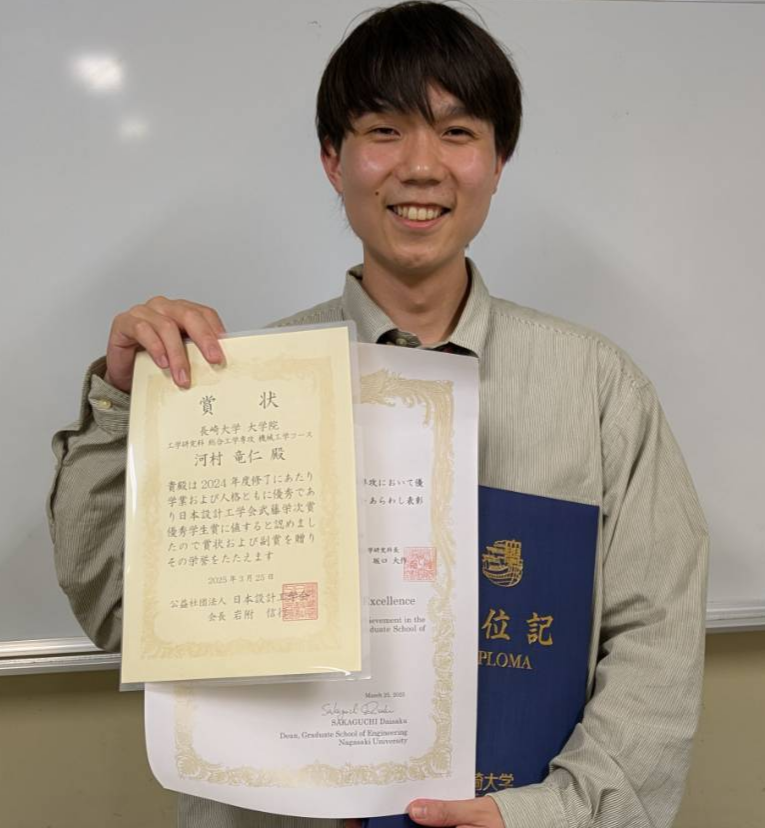 賞 状
長崎大学 大学院
工学研究科 総合工学専攻 機械工学コース
河村 竜仁 殿
貴殿は 2024 年度修了にあたり
学業および人格ともに優秀であ
り日本設計工学会武藤栄次賞
優秀学生賞に値すると認めまし
たので賞状および副賞を贈り
その栄誉をたたえます
2025 年 3 月 25 日
公益社団法人 日本設計工学会
会長 岩附 信行
専攻において優
あらわし表彰
学研究科長
坂口 大作
xcellence
ievement in the
duate School of
March 25, 2025
SAKAGUCHI Daisaku
Dean, Graduate School of Engineering
Nagasaki University
位記
PLOMA
崎大学